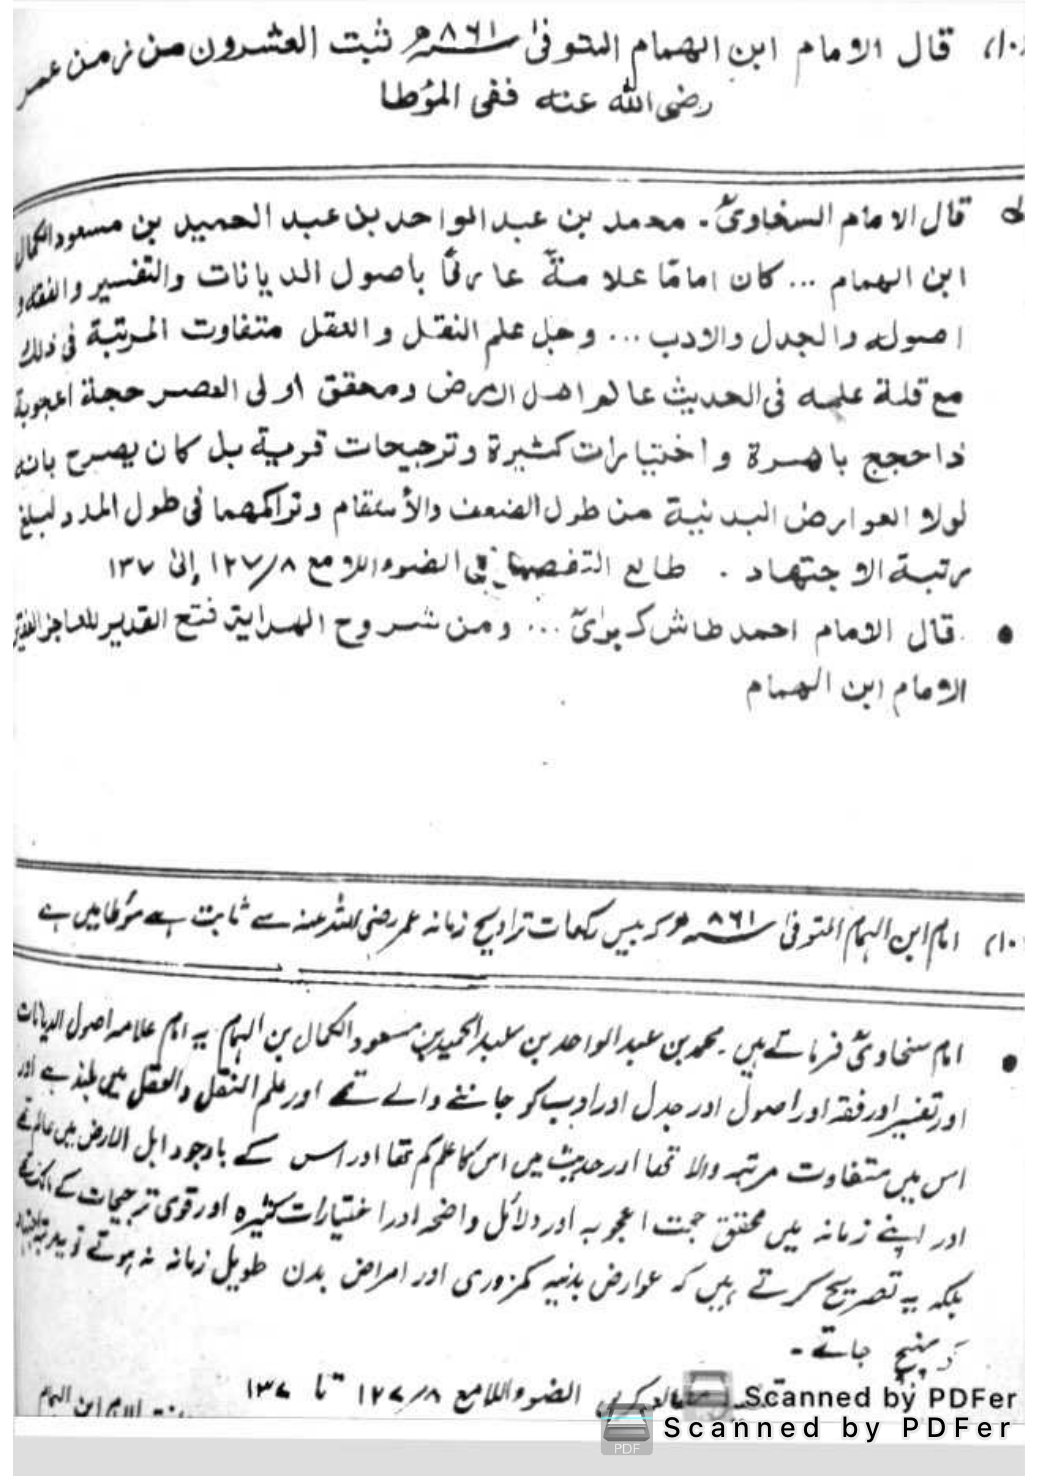 (١٠) قال الامام ابن الهمام المتوفیٰ ٨٦١ھ ثبت العشرون من زمن عمر
رضی اللہ عنہ ففی المؤطا
قال الامام السخاویؒ۔ محمد بن عبد الواحد بن عبد الحمید بن مسعود الکمال
ابن الہمام ... کان امامًا علامۃً عارفًا باصول الدیانات والتفسیر والفقہ و
اصولہ والجدل والادب ... وجل علم النقل والعقل متفاوت المرتبۃ فی ذلک
مع قلۃ علمہ فی الحدیث عالم اھل الارض ومحقق اولی العصر حجۃ اعجوبۃ
ذا حجج باھرۃ واختیارات کثیرۃ وترجیحات قویۃ بل کان یصرح بانہ
لولا العوارض البدنیۃ من طول الضعف والأسقام وتراکمھما فی طول المدد لبلغ
رتبۃ الاجتھاد . طالع التفصیل فی الضوء اللامع ١٢٧/٨ إلیٰ ١٣٧
• قال الامام احمد طاش کبریٰؒ ... ومن شروح الھدایۃ فتح القدیر للعاجز الفقیر
الامام ابن الہمام
(١٠) امام ابن الہمام المتوفیٰ ٨٦١ھ کہ بیس رکعات تراویح زمانہ عمر رضی اللہ عنہ سے ثابت ہے مؤطا میں ہے
• امام سخاویؒ فرماتے ہیں۔ محمد بن عبد الواحد بن عبد الحمید بن مسعود الکمال بن الہمام یہ امام علامہ اصول الدیانات
اور تفسیر اور فقہ اور اصول اور جدل اور ادب کو جاننے والے تھے اور علم النقل والعقل میں بلند ہے اور
اس میں متفاوت مرتبہ والا تھا اور حدیث میں اس کا علم کم تھا اور اس کے باوجود اہل الارض میں عالم تھے
اور اپنے زمانہ میں محقق حجت اعجوبہ اور دلائل واضحہ اور اختیارات کثیرہ اور قوی ترجیحات کے
بلکہ یہ تصریح کرتے ہیں کہ عوارض بدنیہ کمزوری اور امراض بدن طویل زمانہ نہ ہوتے تو یہ
کو پہنچ جاتے۔
الضوء اللامع ١٢٧/٨ تا ١٣٧
الامام ابن الہمام
Scanned by PDFer
Scanned by PDFer
PDF